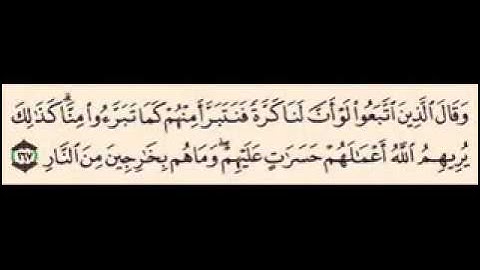 وَقَالَ ٱلَّذِينَ ٱتَّبَعُوا۟ لَوْ أَنَّ لَنَا كَرَّةً فَنَتَبَرَّأَ مِنْهُمْ كَمَا تَبَرَّءُوا۟ مِنَّا ۗ كَذَٰلِكَ
يُرِيهِمُ ٱللَّهُ أَعْمَـٰلَهُمْ حَسَرَٰتٍ عَلَيْهِمْ ۖ وَمَا هُم بِخَـٰرِجِينَ مِنَ ٱلنَّارِ ١٦٧